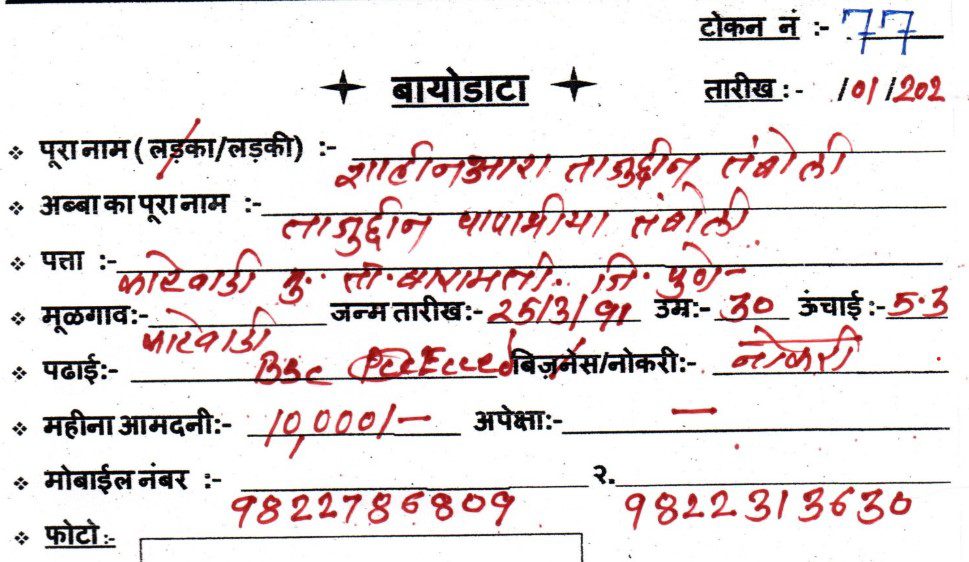 टोकन नं :- 77
बायोडाटा
तारीख :- /01/202
पूरा नाम ( लड़का/लड़की) :- शाहीनआरा ताजुद्दीन तंबोली
अब्बा का पूरा नाम :- ताजुद्दीन पापामीया तंबोली
पत्ता :- काटेवाडी मु. ता. बारामती. जि. पुणे
मूळगाव:- काटेवाडी जन्म तारीख:- 25/3/91 उम्र:- 30 ऊंचाई :- 5.3
पढाई:- BSc बिज़नेस/नोकरी:- नोकरी
महीना आमदनी:- 10,000/- अपेक्षा:- —
मोबाईल नंबर :- 9822786809 २. 9822313630
फोटो :-